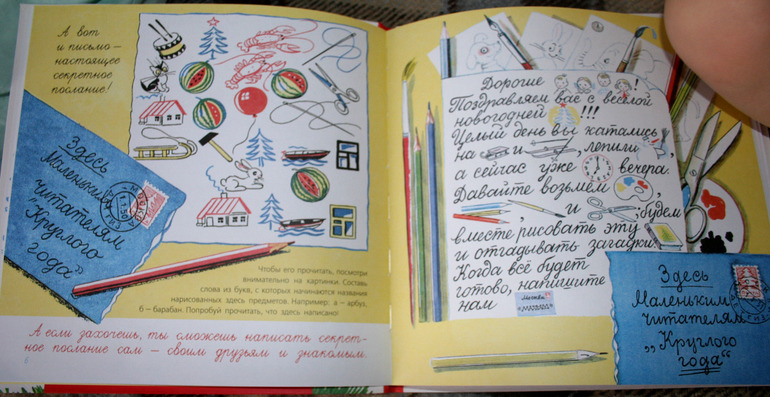 А вот
и письмо —
настоящее
секретное
послание!
Здесь
Маленьким
читателям
„Круглого
года“
МОСКВА
Чтобы его прочитать, посмотри
внимательно на картинки. Составь
слова из букв, с которых начинаются названия
нарисованных здесь предметов. Например: а – арбуз,
б – барабан. Попробуй прочитать, что здесь написано!
А если захочешь, ты сможешь написать секрет-
ное послание сам — своим друзьям и знакомым.
Дорогие !
Поздравляем вас с весёлой
новогодней !!!
Целый день вы катались
на и , лепили
а сейчас уже вечера.
Давайте возьмём ,
, и , будем
вместе рисовать эту
и отгадывать загадки.
Когда всё будет
готово, напишите
нам
Москва
"МАЛЫШ"
Здесь
Маленьким
читателям
„Круглого
года“